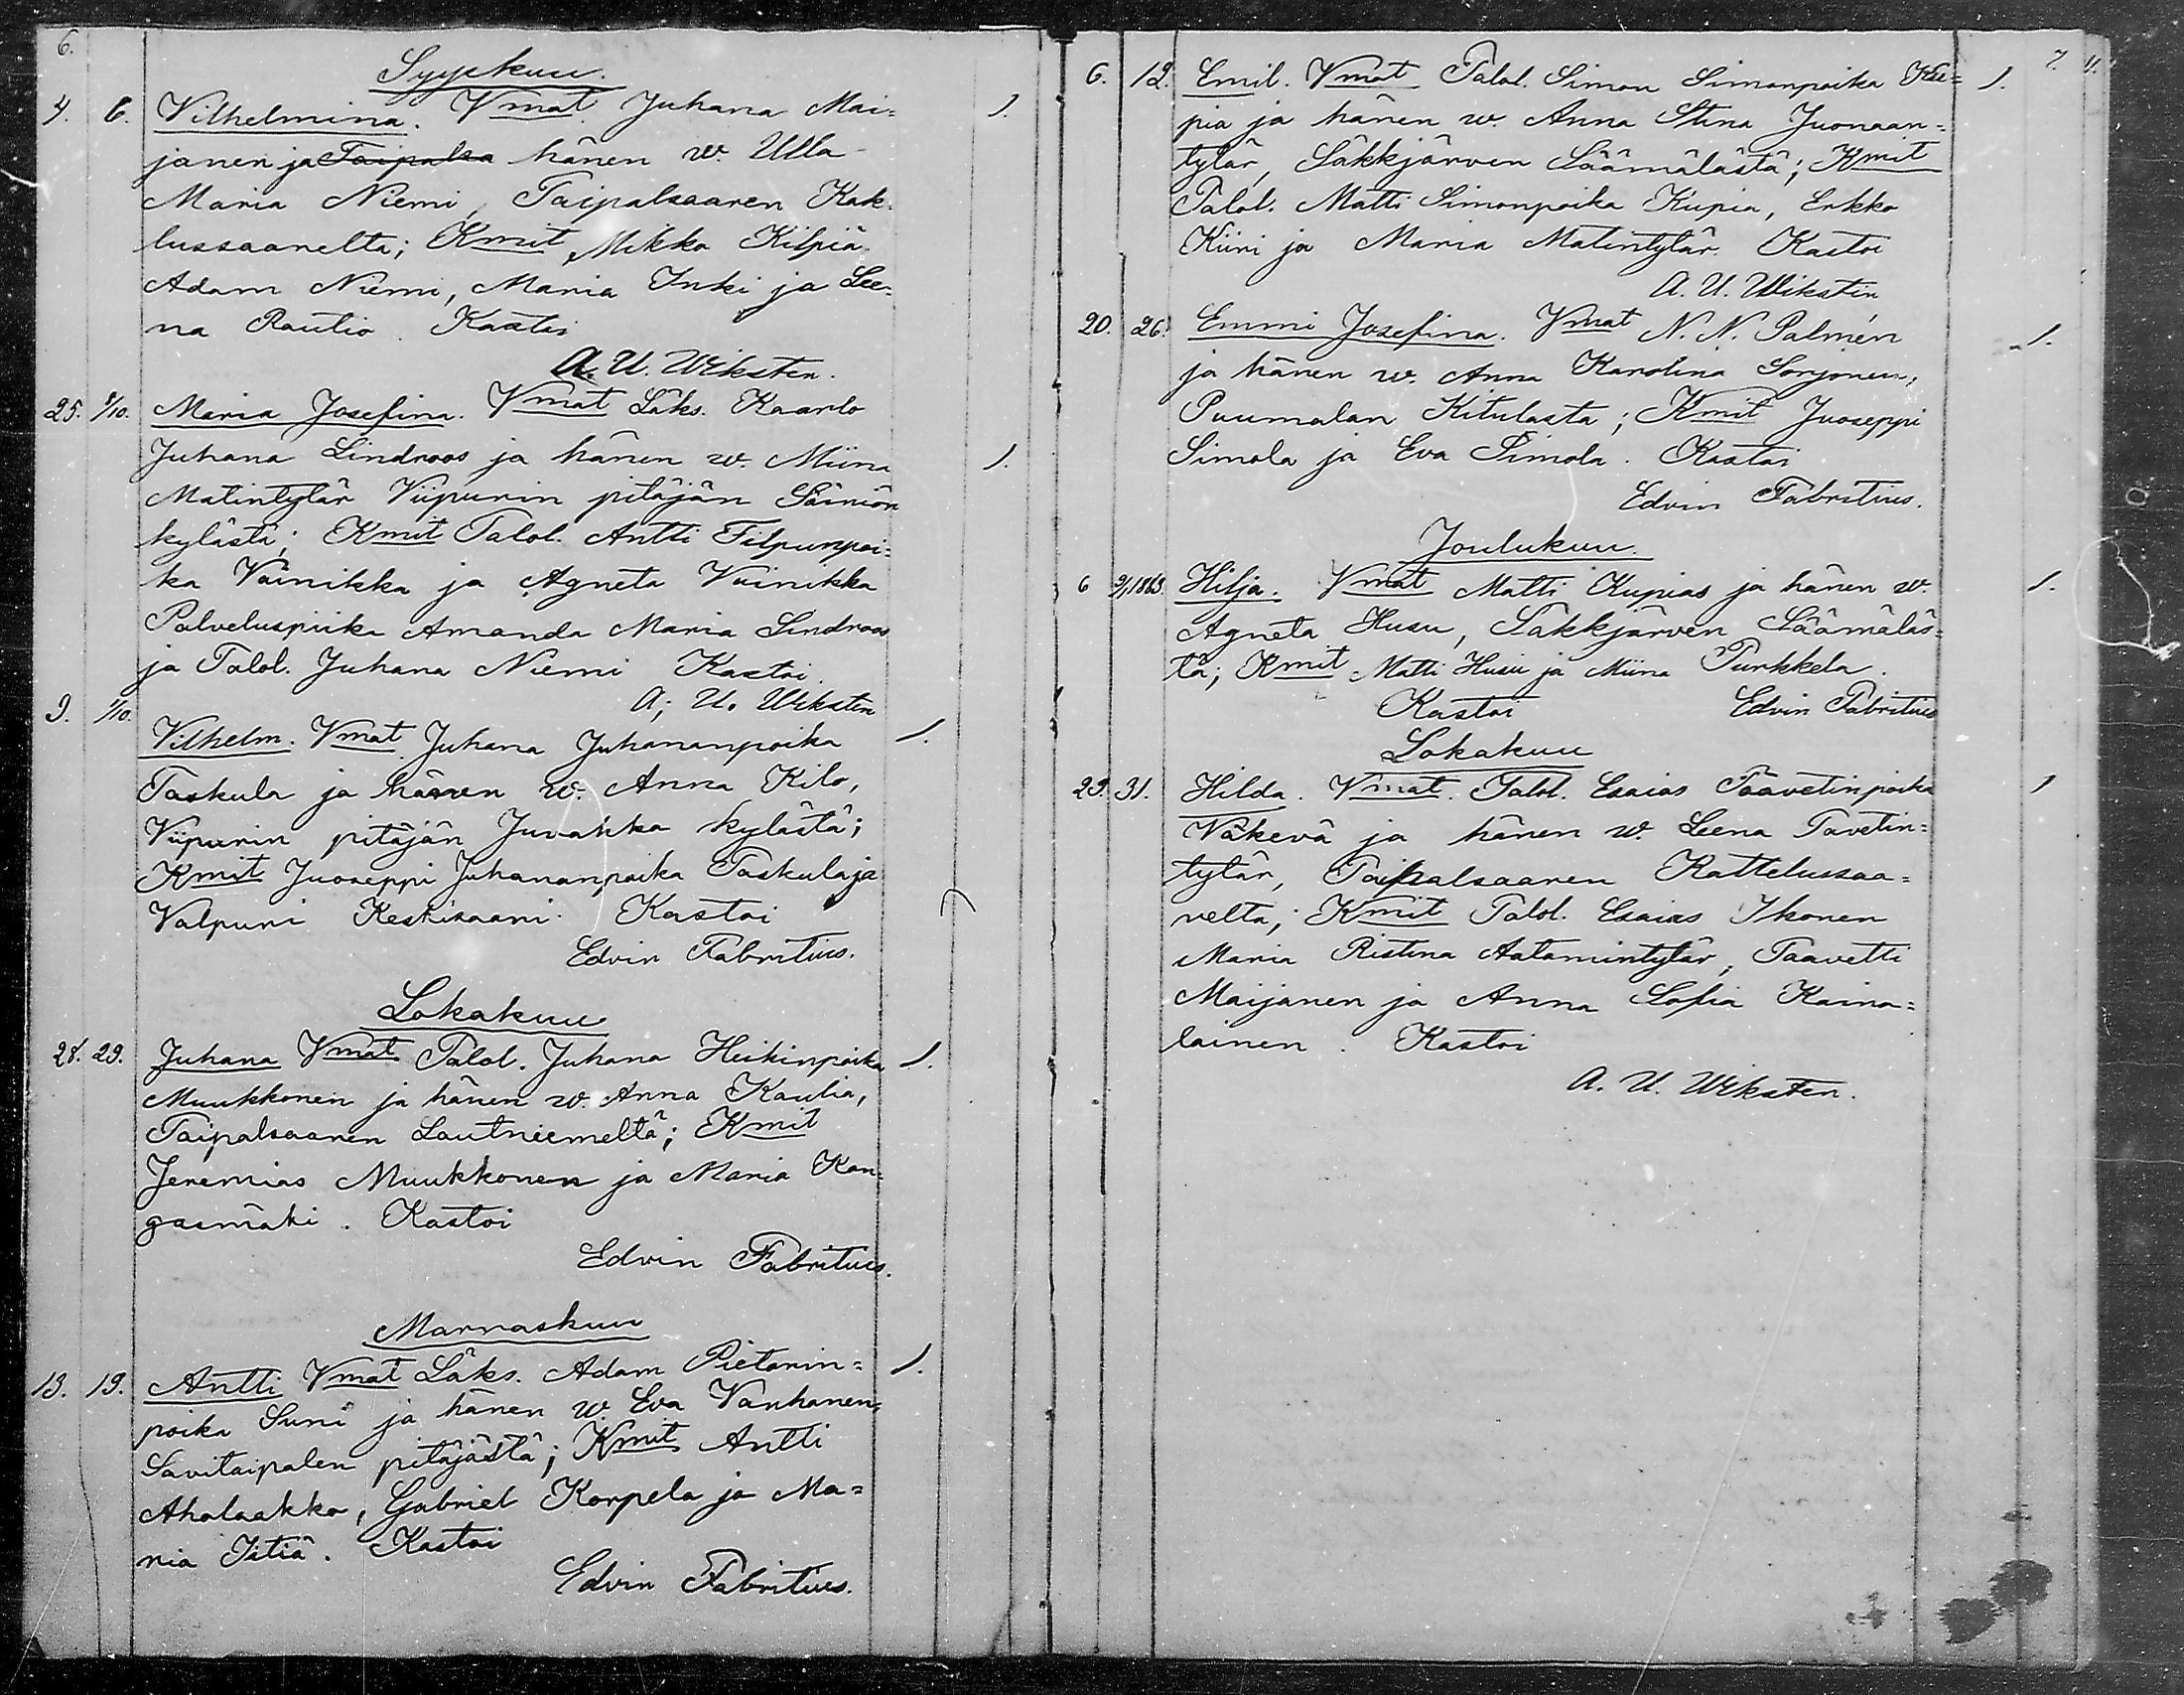 6.
Syyskuu.
4. 6. Vilhelmina. Vmat. Juhana Mai= 1.
janen ja Taipalsa hänen w. Ulla
Maria Niemi, Taipalsaaren Kak.
lussaarelta; Kmit Mikko Kilpiä
Adam Niemi, Maria Inki ja Lee=
na Rautio. Kastoi
A. U. Wiksten.
25. 8/10. Maria Josefina. Vmat Läks. Kaarlo
Juhana Lindroos ja hänen w. Miina 1.
Matintytär Viipurin pitäjän Säiniön
kylästä; Kmit Talol. Antti Filpunpoi=
ka Vainikka ja Agneta Vainikka
Palveluspiika Amanda Maria Lindroos
ja Talol. Juhana Niemi Kastoi.
A; U. Wiksten
9. 1/10.
Vilhelm. Vmat Juhana Juhananpoika 1.
Taskula ja hänen w. Anna Kilo,
Viipurin pitäjän Juvakka kylästä;
Kmit Juoseppi Juhananpoika Taskula ja
Valpuri Keskisaari. Kastoi
Edvin Fabritius.
Lokakuu
28. 29. Juhana Vmat Talol. Juhana Heikinpoika 1.
Muukkonen ja hänen w. Anna Kaulia,
Taipalsaaren Lautniemeltä; Kmit
Jeremias Muukkonen ja Maria Kan=
gasmäki. Kastoi
Edvin Fabritius.
Marraskuu
13. 19. Antti Vmat Läks. Adam Pietarin= 1.
poika Suni ja hänen w Eva Vanhanen,
Savitaipalen pitäjästä; Kmit Antti
Aholaakko, Gabriel Korpela ja Ma=
ria Istiä. Kastoi
Edvin Fabritius.
7.
6. 12. Emil. Vmat Talol. Simon Simonpoika Ku= 1.
pia ja hänen w. Anna Stina Juonaan=
tytär, Säkkjärven Säämälästä; Kmit
Talol. Matti Simonpoika Kupia, Erkko
Kiiri ja Maria Matintytär. Kastoi
A. U. Wikstén
20. 26. Emmi Josefina. Vmat N. N. Palmén 1.
ja hänen w. Anna Karolina Sorjonen,
Puumalan Kitulasta; Kmit Juoseppi
Simola ja Eva Simola. Kastoi
Edvin Fabritius.
Joulukuu.
6 9/1 1863. Hilja. Vmat Matti Kupias ja hänen w. 1.
Agneta Husu, Säkkjärven Säämäläs=
tä; Kmit Matti Husu ja Miina Purkkela.
Kastoi Edvin Fabritius
Lokakuu
29. 31. Hilda. Vmat. Talol. Esaias Taavetinpoika 1
Väkevä ja hänen w. Leena Tavetin=
tytär, Taipalsaaren Rattelussaa=
relta; Kmit Talol. Esaias Ikonen
Maria Ristina Aatamintytär, Taavetti
Maijanen ja Anna Sofia Kaina=
lainen. Kastoi
A. U. Wiksten.